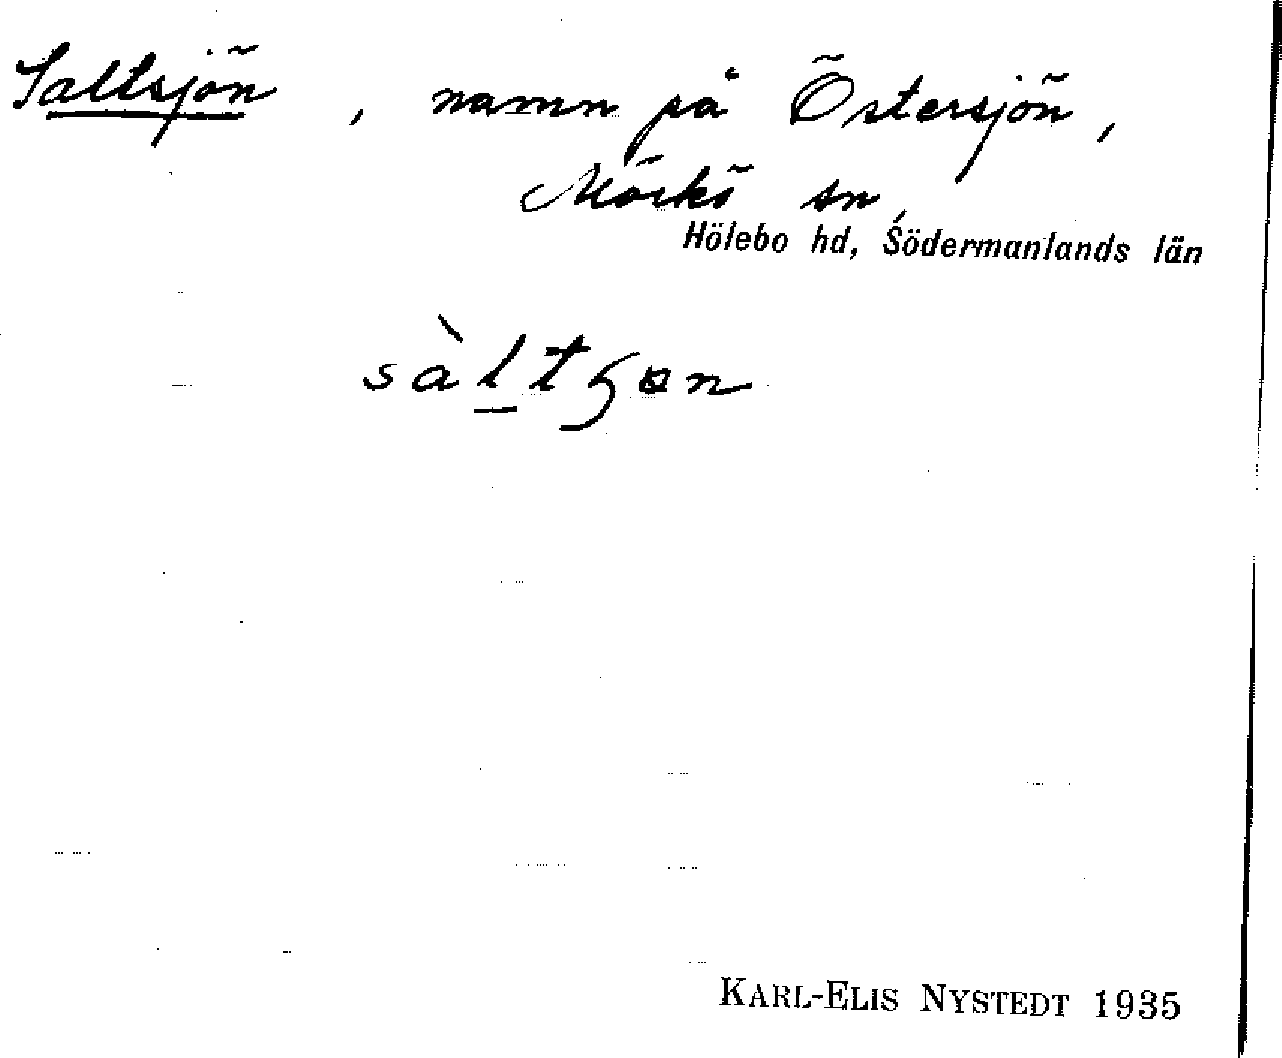 Saltsjön, namn på Östersjön,
Mörkö sn,
Hölebo hd, Södermanlands län
sàltʒɷn
KARL-ELIS NYSTEDT 1935